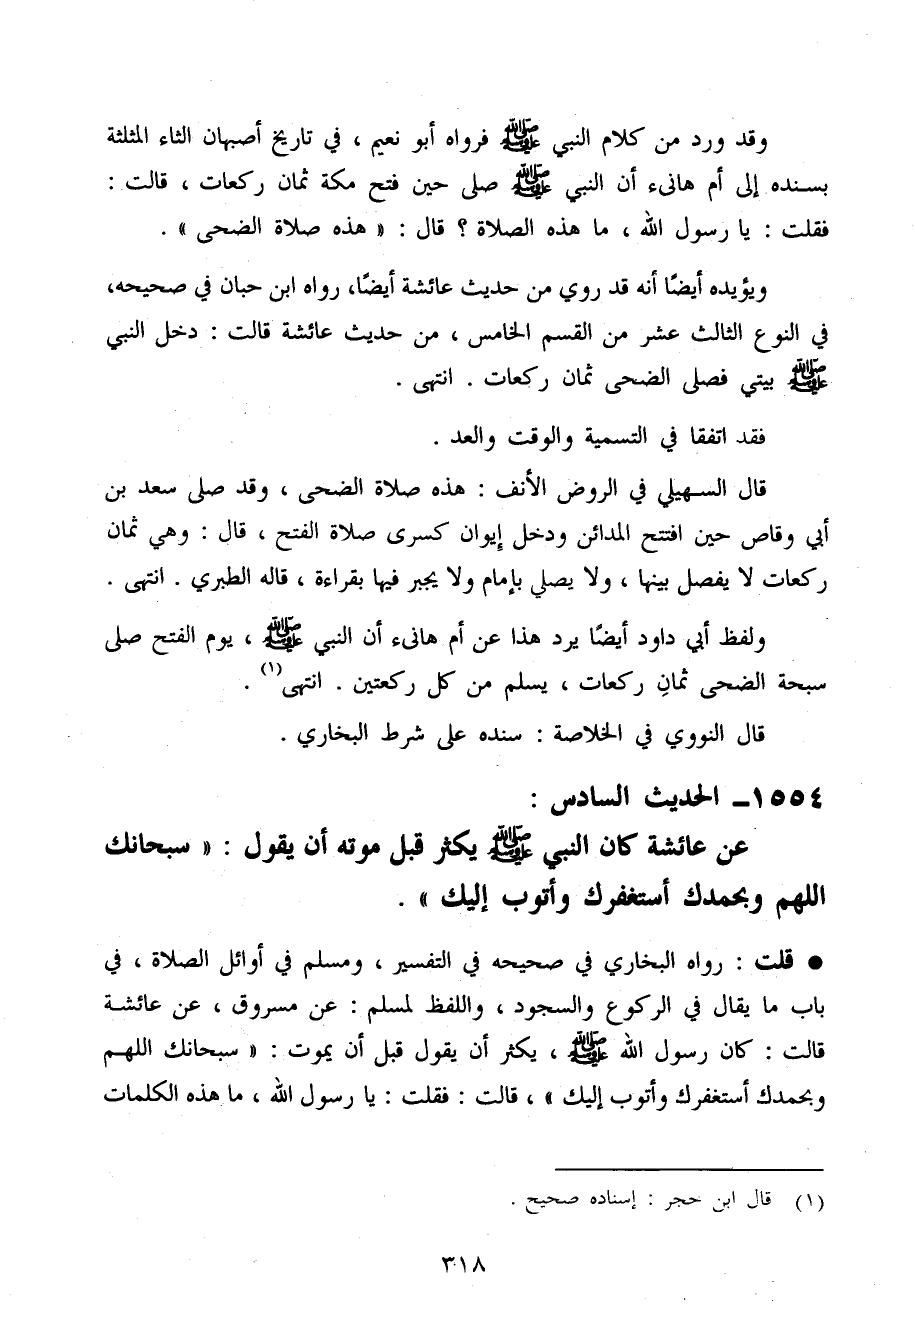 وقد ورد من كلام النبي ﷺ فرواه أبو نعيم ، في تاريخ أصبهان الثاء المثلثة
بسنده إلى أم هانىء أن النبي ﷺ صلى حين فتح مكة ثمان ركعات ، قالت :
فقلت : يا رسول الله ، ما هذه الصلاة ؟ قال : « هذه صلاة الضحى » .
ويؤيده أيضًا أنه قد روي من حديث عائشة أيضًا، رواه ابن حبان في صحيحه،
في النوع الثالث عشر من القسم الخامس ، من حديث عائشة قالت : دخل النبي
ﷺ بيتي فصلى الضحى ثمان ركعات . انتهى .
فقد اتفقا في التسمية والوقت والعد .
قال السهيلي في الروض الأنف : هذه صلاة الضحى ، وقد صلى سعد بن
أبي وقاص حين افتتح المدائن ودخل إيوان كسرى صلاة الفتح ، قال : وهي ثمان
ركعات لا يفصل بينها ، ولا يصلي بإمام ولا يجبر فيها بقراءة ، قاله الطبري . انتهى .
ولفظ أبي داود أيضًا يرد هذا عن أم هانىء أن النبي ﷺ ، يوم الفتح صلى
سبحة الضحى ثمانِ ركعات ، يسلم من كل ركعتين . انتهى(١) .
قال النووي في الخلاصة : سنده على شرط البخاري .
١٥٥٤ـ الحديث السادس :
عن عائشة كان النبي ﷺ يكثر قبل موته أن يقول : « سبحانك
اللهم وبحمدك أستغفرك وأتوب إليك » .
● قلت : رواه البخاري في صحيحه في التفسير ، ومسلم في أوائل الصلاة ، في
باب ما يقال في الركوع والسجود ، واللفظ لمسلم : عن مسروق ، عن عائشة
قالت : كان رسول الله ﷺ ، يكثر أن يقول قبل أن يموت : « سبحانك اللهم
وبحمدك أستغفرك وأتوب إليك » ، قالت : فقلت : يا رسول الله ، ما هذه الكلمات
(١) قال ابن حجر : إسناده صحيح .
٣١٨